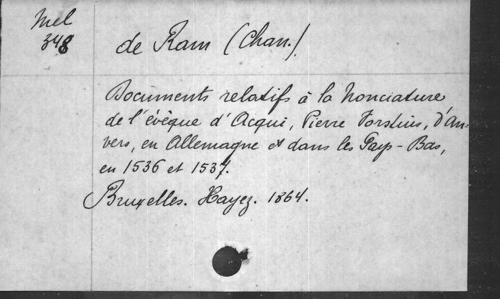 Mel
348
de Ram (Chan.)
Documents relatifs à la Nonciature
de l'évêque d'Acqui, Pierre Vorstius, d'An-
vers, en Allemagne et dans les Pays-Bas,
en 1536 et 1537.
Bruxelles. Hayez. 1864.